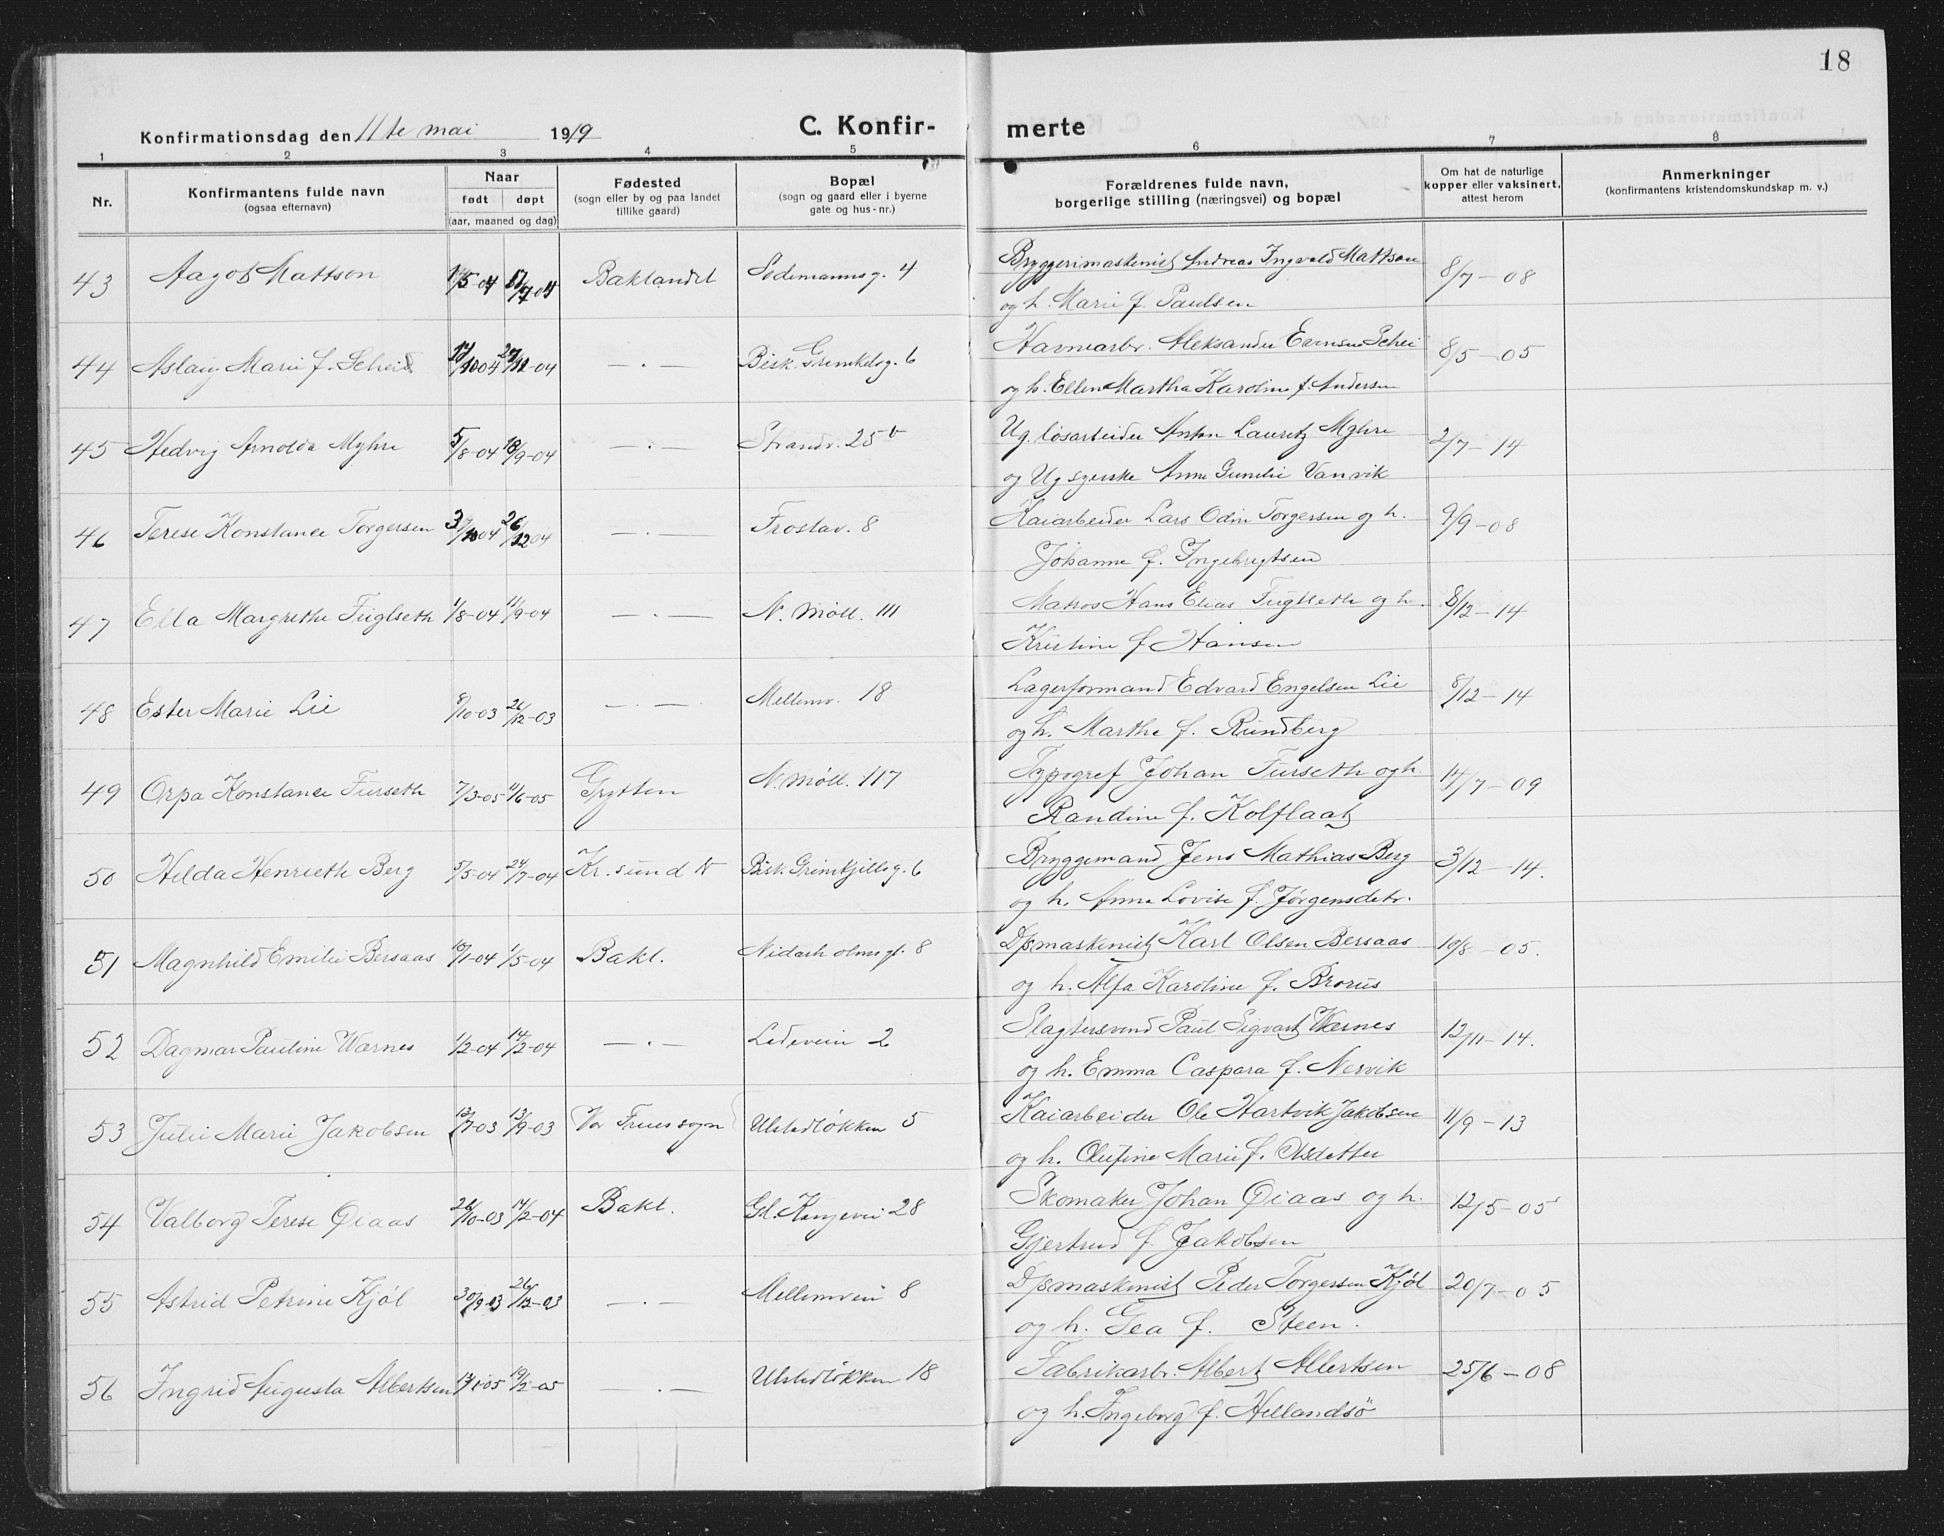 18
Konfirmationsdag den 11te mai 1919 C. Konfir- merte
1 2 3 4 5 6 7 8
Nr. Konfirmantens fulde navn (ogsaa efternavn) Naar født døpt (aar, maaned og dag) Fødested (sogn eller by og paa landet tillike gaard) Bopæl (sogn og gaard eller i byerne gate og hus-nr.) Forældrenes fulde navn, borgerlige stilling (næringsvei) og bopæl Om hat de naturlige kopper eller vaksinert, attest herom Anmerkninger (konfirmantens kristendomskundskap m. v.)
43 Aagot Mattson Baklandet 4 Bryggerimaskenist Andreas Ingvald Mattson 8/7-08
og h. Marie f. Paulsen
44 Aslaug Marie f. Schei — . — Bisk. Grimkelsg. 6 Havnearbr. Aleksander Schei 8/5-05
og h. Ellen Martha Karoline f. Andersen
45 Hedvig Arnolda Myhre 5/8-04 18/9-04 — . — Strandv. 25 b Ug. løsarbeider Anton Lauretz Myhre 2/7-14
og Ug syerske Anne Gunelie Vanvik
46 Terese Konstance Torgersen 3/10 04 26/12 04 — . — Frostav. 8 Kaiarbeider Lars Odin Torgersen og h. 9/9-08
Johanne f. Ingebrygtsen
47 Ella Margrethe Fuglseth 1/8-04 11/9-04 — . — N. Møll. 111 Matros Hans Elias Fuglseth og h. 8/12-14
Kristine f Hansen
48 Ester Marie Lie 8/10-03 26/12-03 — . — Mellemv. 18 Lagerformand Edvard Engelsen Lie 8/12-14
og h. Marthe f. Rundberg
49 Orpa Konstance Furseth 7/3-05 11/6-05 Grytten N. Møll. 117 Typogref Johan Furseth og h. 14/7-09
Randine f. Kolflaat
50 Hilda Henrieth Berg 5/5-04 24/7-04 Kr. sund N Bisk. Grimkjellsg. 6 Bryggemand Jens Mathias Berg 3/12-14.
og h. Anne Lovise f. Jørgensdetr.
51 Magnhild Emilie Bersaas 10/1-04 1/5-04 Bakl. Nidarholmsgt. 8 Dpsmaskenist Karl Olsen Bersaas 19/8-05.
og h. Alfa Karoline f. Brorus
52 Dagmar Pauline Wærnes 1/2-04 14/2-04 — . — Ladeveien 2 Slagtersvend Paul Sigvart Wærnes 12/11-14.
og h. Emma Caspara f. Nesvik
53 Julie Marie Jakobsen 12/7-03 13/9-03 Vor Frues sogn Ulstadløkken 5 Kaiarbeider Ole Hartvik Jakobsen 11/9-13
og h. Olufine Marie f. Olsdetter
54 Valborg Terese Øiaas 26/10-03 14/2-04 Bakl. Gl. Kongevei 28 Skomaker Johan Øiaas og h. 12/5-05
Gjertrud f. Jakobsen
55 Astrid Petrine Kjøl 30/9-03 26/12-03 — . — Mellemveien 8 Dpsmaskenist Peder Torgersen Kjøl 20/7-05
og h. Gea f. Steen.
56 Ingrid Augusta Albertsen 19/2-05 . — Ulstadløkken 18 Fabrikarbr. Albert Albertsen 25/6-08
og h. Ingeborg f. Hellandsö